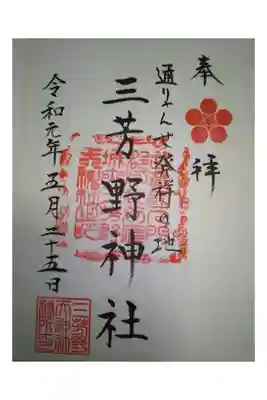 奉拝
通りゃんせ発祥の地
三芳野神社
令和元年五月二十五日